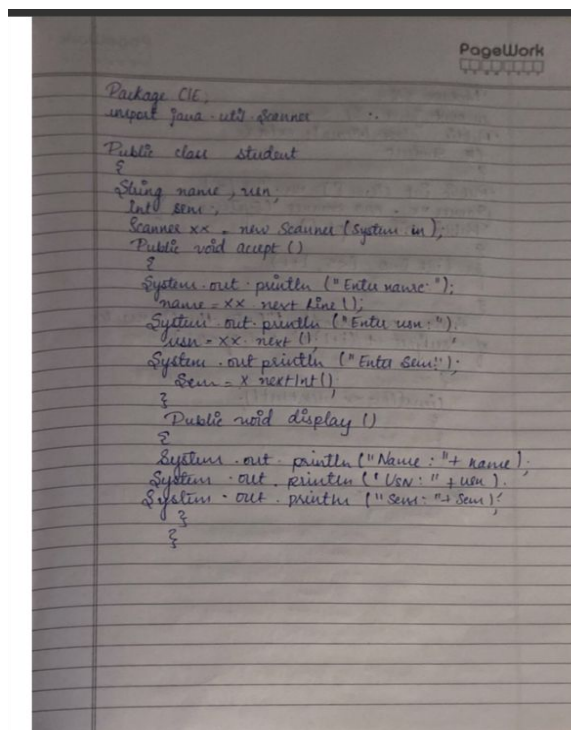 PageWork
Package CIE;
import java.util.Scanner
Public class student
{
String name, usn;
Int sem;
Scanner xx = new Scanner (System.in);
Public void accept ()
{
System.out.println ("Enter name: ");
name = xx.next Line ();
System.out.println ("Enter usn: ");
usn = xx.next ();
System.out println ("Enter Sem:");
Sem = x nextInt();
}
Public void display ()
{
System.out.println ("Name : "+ name);
System.out.println ("USN : " + usn).
System.out.println ("Sem: "+ Sem);
}
}